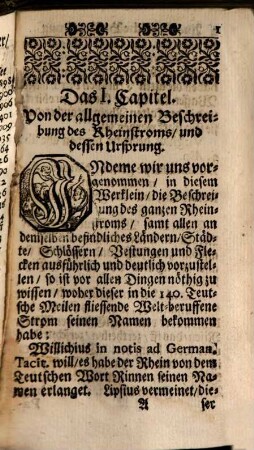 1
Das I. Capitel.
Von der allgemeinen Beschrei-
bung des Rheinstroms/ und
dessen Ursprung.
INdeme wir uns vor-
genommen / in diesem
Wercklein / die Beschrei-
bung des ganzen Rhein-
stroms / samt allen an
demselben befindliches Ländern/ Städ-
te/ Schlössern / Vestungen und Fle-
cken ausführlich und deutlich vorzustel-
len / so ist vor allen Dingen nöthig zu
wissen / woher dieser in die 140. Teut-
sche Meilen fliessende Welt-beruffene
Strom seinen Namen bekommen
habe:
Willichius in notis ad German.
Tacit. will/ es habe der Rhein von dem
Teutschen Wort Rinnen seinen Na-
men erlanget. Lipsius vermeinet/ die-
A
ser
er/
909
904